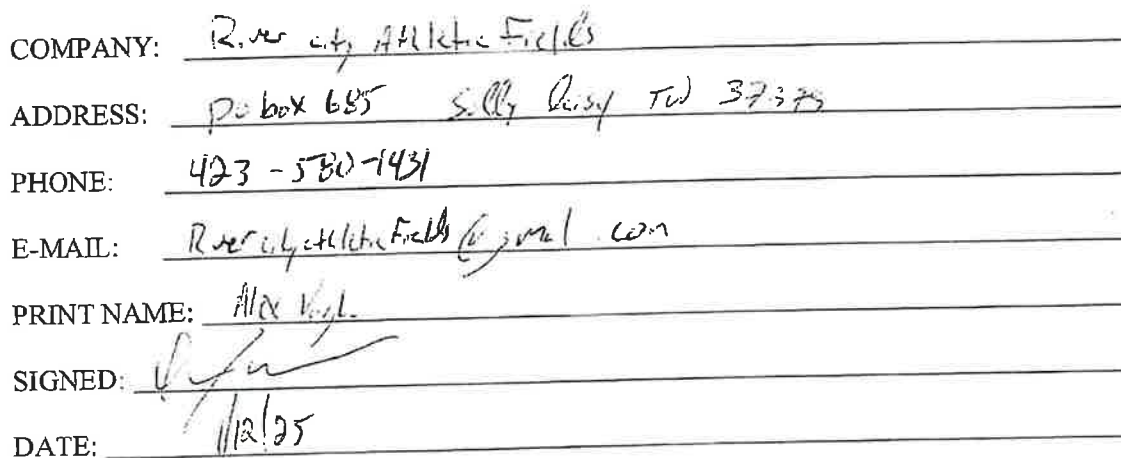 COMPANY: River city Athletic Fields
ADDRESS: po box 685 Soddy Daisy TN 37379
PHONE: 423-580-1431
E-MAIL: RivercityathleticFields@gmail.com
PRINT NAME: Alex
SIGNED:
DATE: 1/12/25